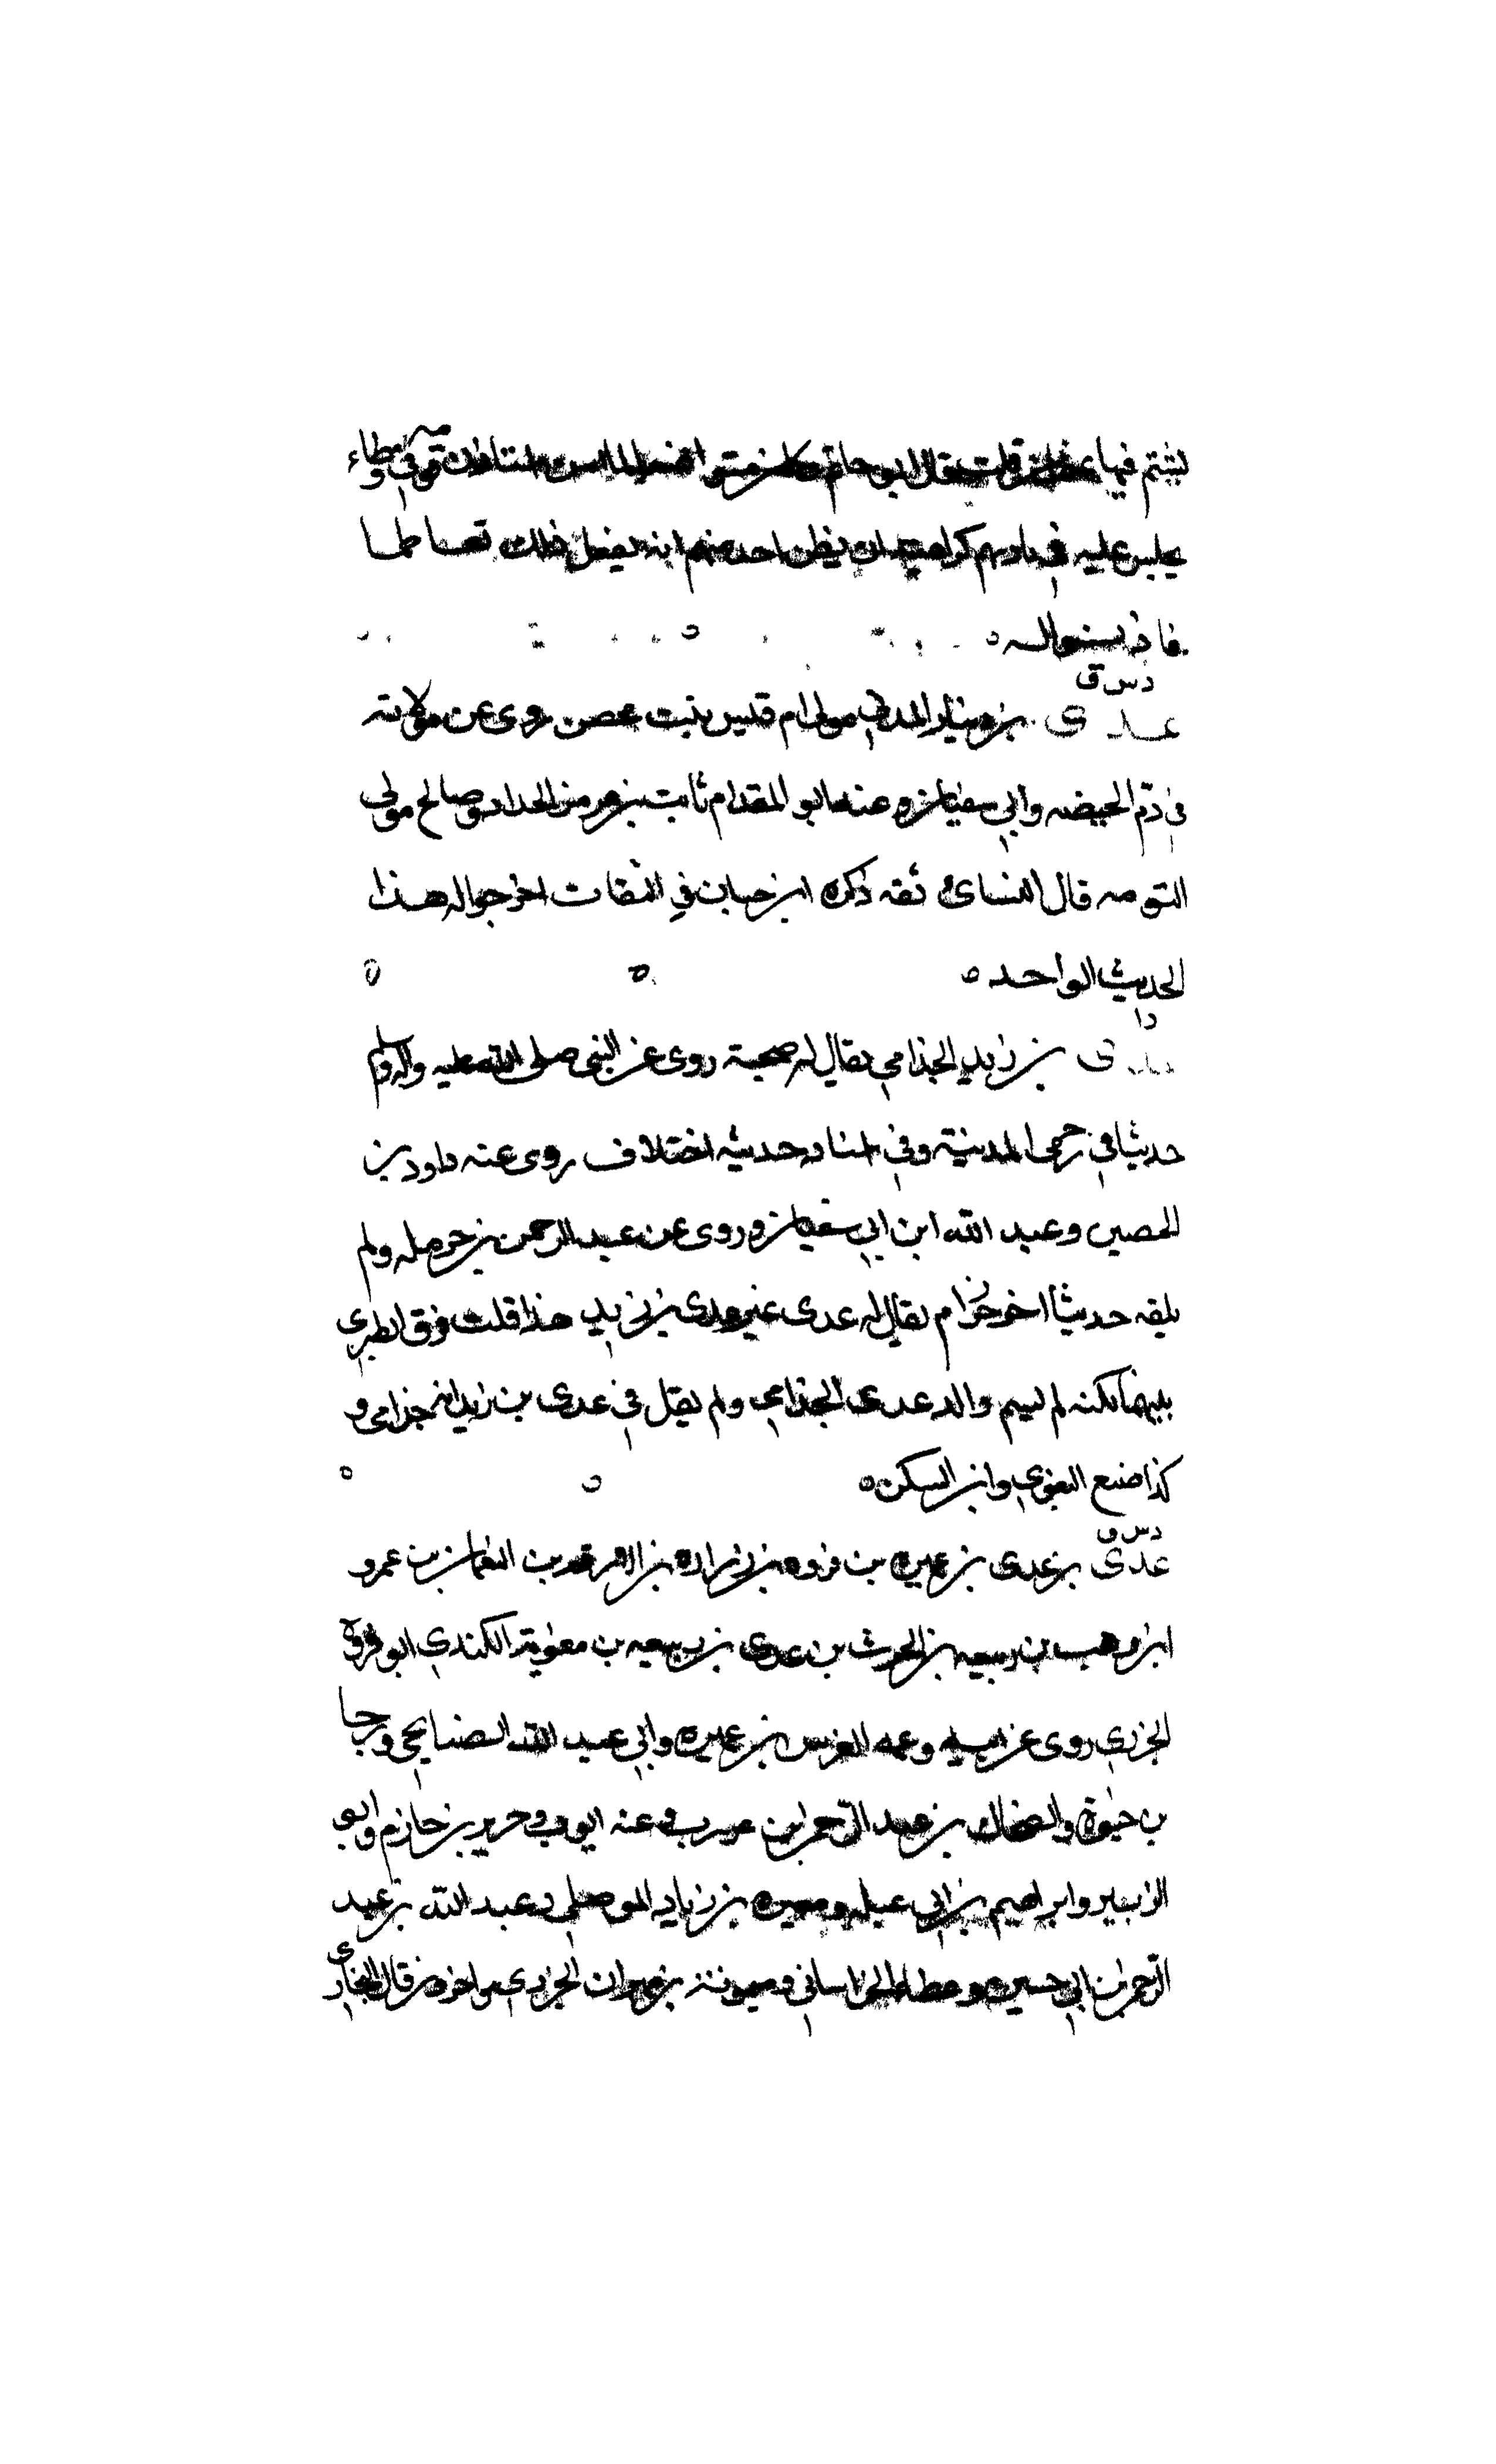 يشتم فيما قلت قال ابو حاتم
يجلس عليه في دارهم كراهية ان يظن احد منهم انه يفعل ذلك
حاله ه
د س ق
عدى بن دينار المدني مولى ام قيس بنت محصن روى عن مولاته
في دم الحيضه وابي سفيان وعنه ابو المقدام ثابت بن هرمز الحداد وصالح مولى
التومه قال النسائي ثقه ذكره ابن حبان في الثقات اخرجوا له هذا
الحديث الواحد ه
د
عدى بن زيد الجذامي يقال له صحبة روى عن النبي صلى الله عليه واله وسلم
حديثا في حمى المدينة وفي اسناد حديثه اختلاف روى عنه داود بن
الحصين وعبد الله ابن ابي سفيان وروى عن عبد الرحمن بن حرمله ولم
يلقه حديثا اخر جذام يقال له عدى غير عدى بن زيد هذا قلت فرق الطبرى
بينهما لكنه لم يسم والد عدى الجذامي ولم يقل في عدى بن زيد انه جذامى و
كذا صنع البغوي وابن السكن ه
د س ق
عدى بن عدى بن عميره بن فروه بن زراره بن الارقم بن النعمان بن عمرو
ابن وهب بن ربيعه بن الحرث بن عدى بن ربيعه بن معوية الكندي ابو فروة
الجزري روى عن ابيه وعمه العرس بن عميره وابي عبد الله الصنابحي ورجا
بن حيوة والضحاك بن عبد الرحمن بن عرزب وعنه ايوب وجرير بن حازم وابو
الزبير وابراهيم بن ابي عبله ومغيره بن زياد الموصلي وعبد الله بن عبد
الرحمن بن ابي حسين وعطاء الخراساني وميمون بن مهران الجزري واخرون قال البخارى